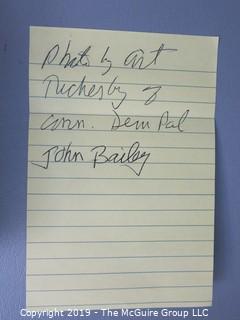 Photo by Art
of
Conn. Dem Pal
John Bailey
Copyright 2019 - The McGuire Group LLC